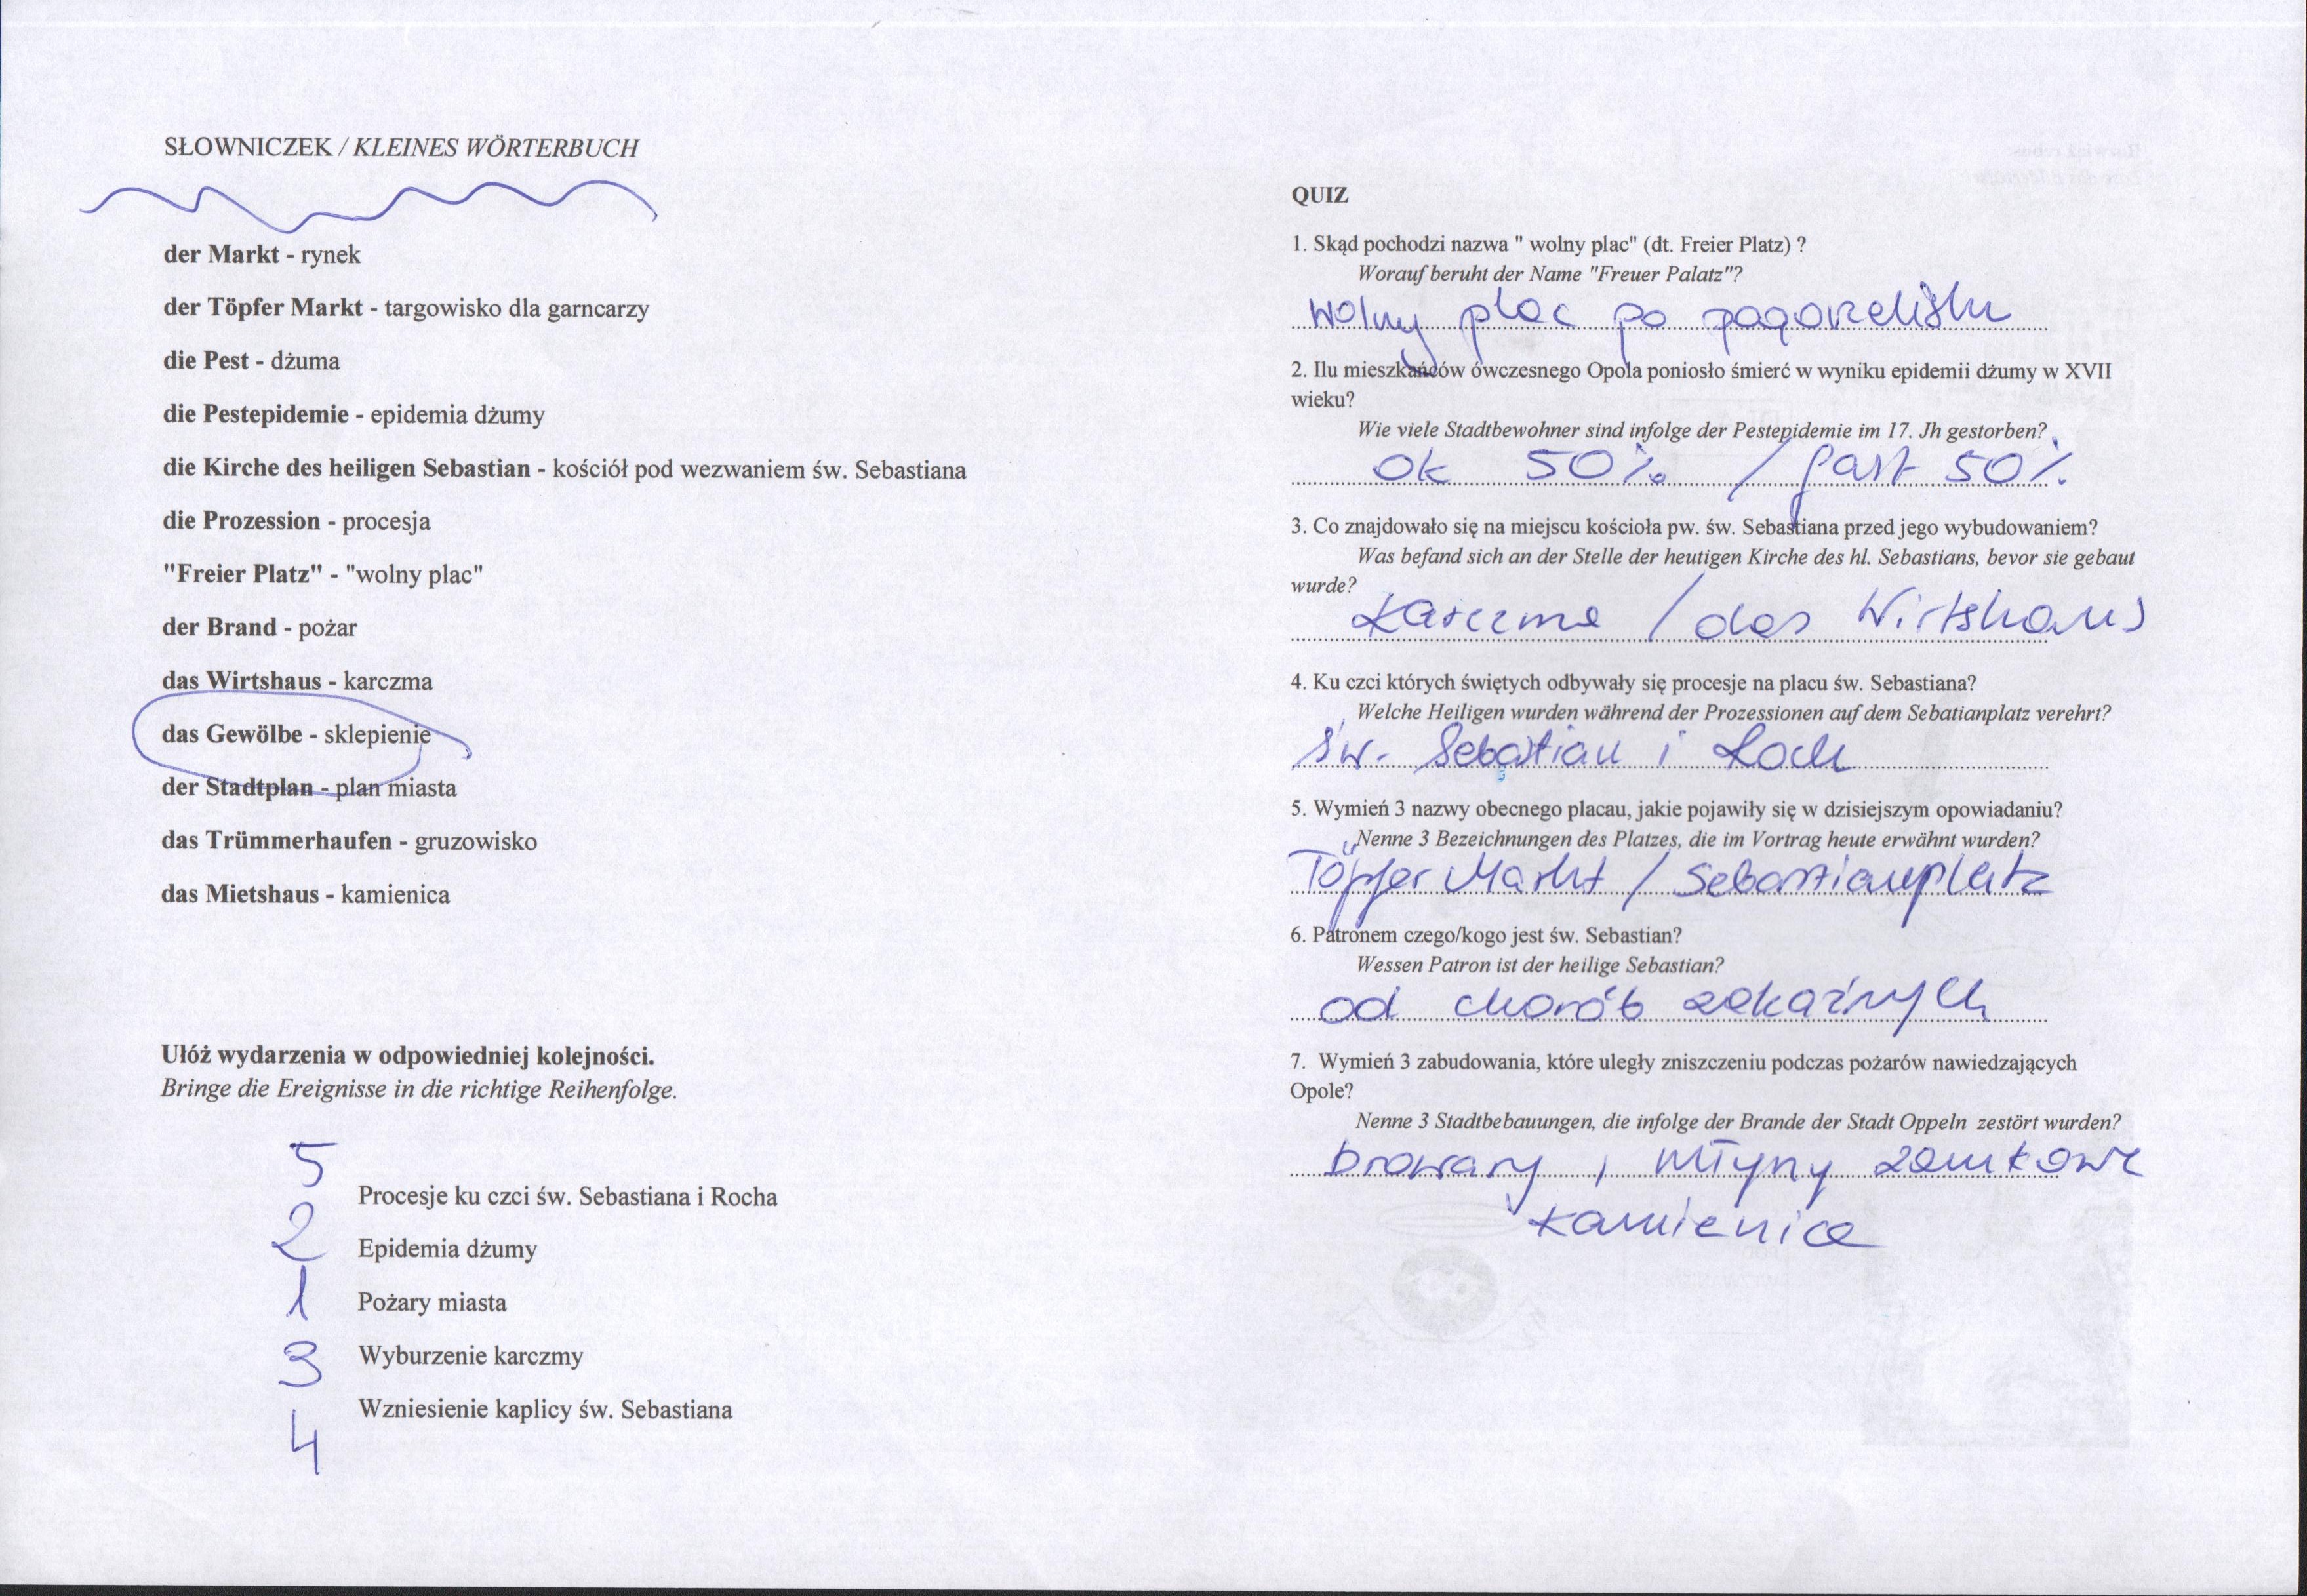 SŁOWNICZEK / KLEINES WÖRTERBUCH
der Markt - rynek
der Töpfer Markt - targowisko dla garncarzy
die Pest - dżuma
die Pestepidemie - epidemia dżumy
die Kirche des heiligen Sebastian - kościół pod wezwaniem św. Sebastiana
die Prozession - procesja
"Freier Platz" - "wolny plac"
der Brand - pożar
das Wirtshaus - karczma
das Gewölbe - sklepienie
der Stadtplan - plan miasta
das Trümmerhaufen - gruzowisko
das Mietshaus - kamienica
Ułóż wydarzenia w odpowiedniej kolejności.
Bringe die Ereignisse in die richtige Reihenfolge.
5 Procesje ku czci św. Sebastiana i Rocha
2 Epidemia dżumy
1 Pożary miasta
3 Wyburzenie karczmy
4 Wzniesienie kaplicy św. Sebastiana
QUIZ
1. Skąd pochodzi nazwa " wolny plac" (dt. Freier Platz) ?
Worauf beruht der Name "Freuer Palatz"?
wolny plac po pogorzelisku
2. Ilu mieszkańców ówczesnego Opola poniosło śmierć w wyniku epidemii dżumy w XVII
wieku?
Wie viele Stadtbewohner sind infolge der Pestepidemie im 17. Jh gestorben?
ok 50% / fast 50%
3. Co znajdowało się na miejscu kościoła pw. św. Sebastiana przed jego wybudowaniem?
Was befand sich an der Stelle der heutigen Kirche des hl. Sebastians, bevor sie gebaut
wurde?
Karczma / das Wirtshaus
4. Ku czci których świętych odbywały się procesje na placu św. Sebastiana?
Welche Heiligen wurden während der Prozessionen auf dem Sebatianplatz verehrt?
św. Sebastian i Roch
5. Wymień 3 nazwy obecnego placau, jakie pojawiły się w dzisiejszym opowiadaniu?
Nenne 3 Bezeichnungen des Platzes, die im Vortrag heute erwähnt wurden?
Töpfer Markt / Sebastianplatz
6. Patronem czego/kogo jest św. Sebastian?
Wessen Patron ist der heilige Sebastian?
od chorób zakaźnych
7. Wymień 3 zabudowania, które uległy zniszczeniu podczas pożarów nawiedzających
Opole?
Nenne 3 Stadtbebauungen, die infolge der Brande der Stadt Oppeln zestört wurden?
browary, młyny zamkowe
kamienica